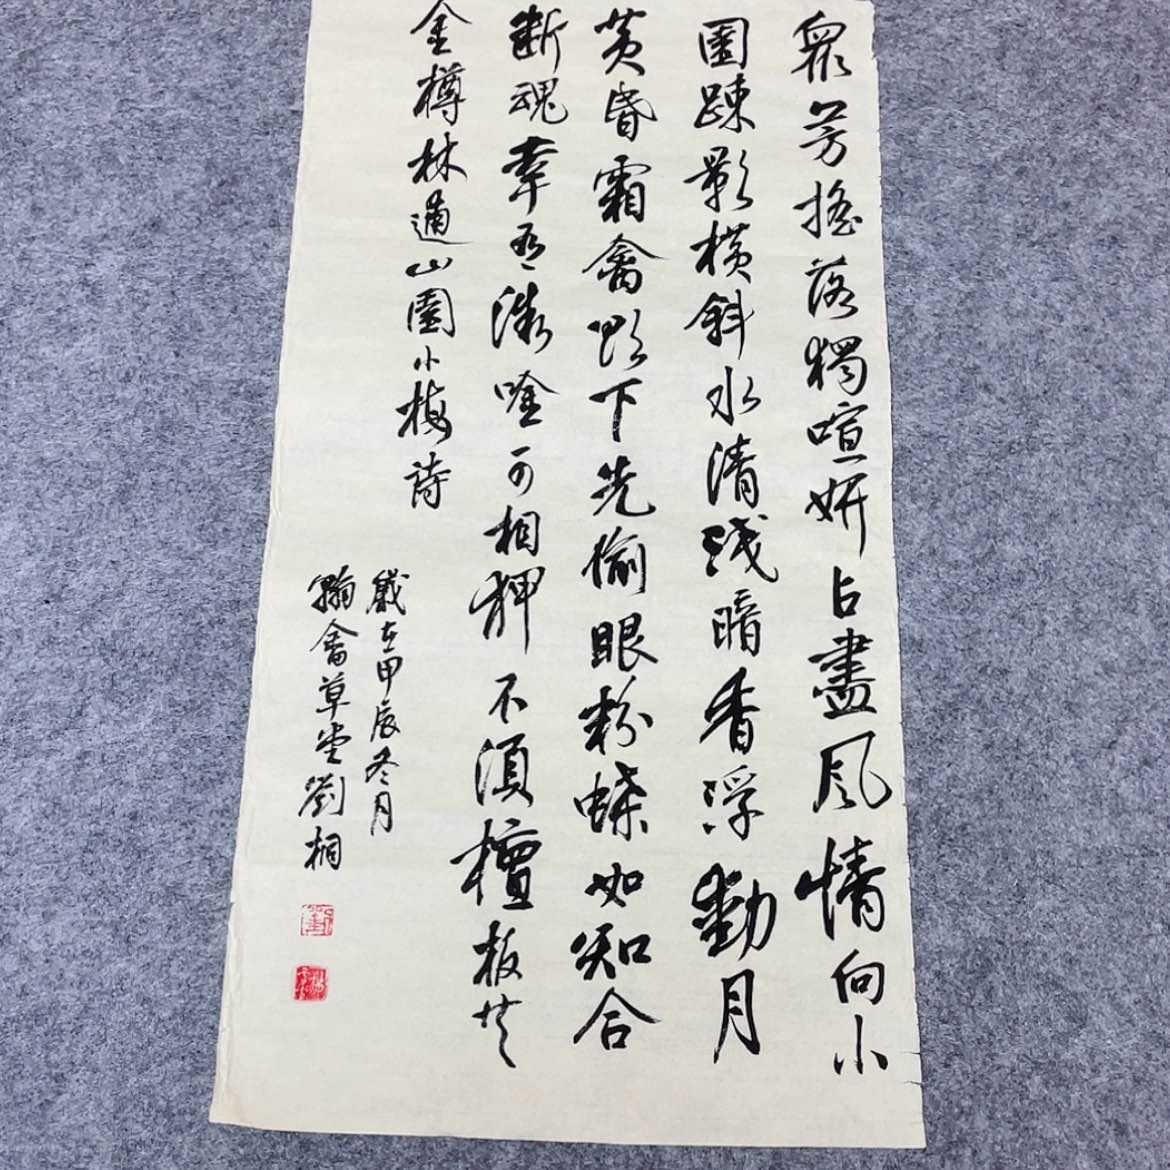 眾芳搖落獨喧妍占盡風情向小
園疎影橫斜水清淺暗香浮動月
黃昏霜禽欲下先偷眼粉蝶如知合
斷魂幸有微吟可相狎不須檀板共
金樽林逋山園小梅詩
歲在甲辰冬月
翰畬草堂劉桐